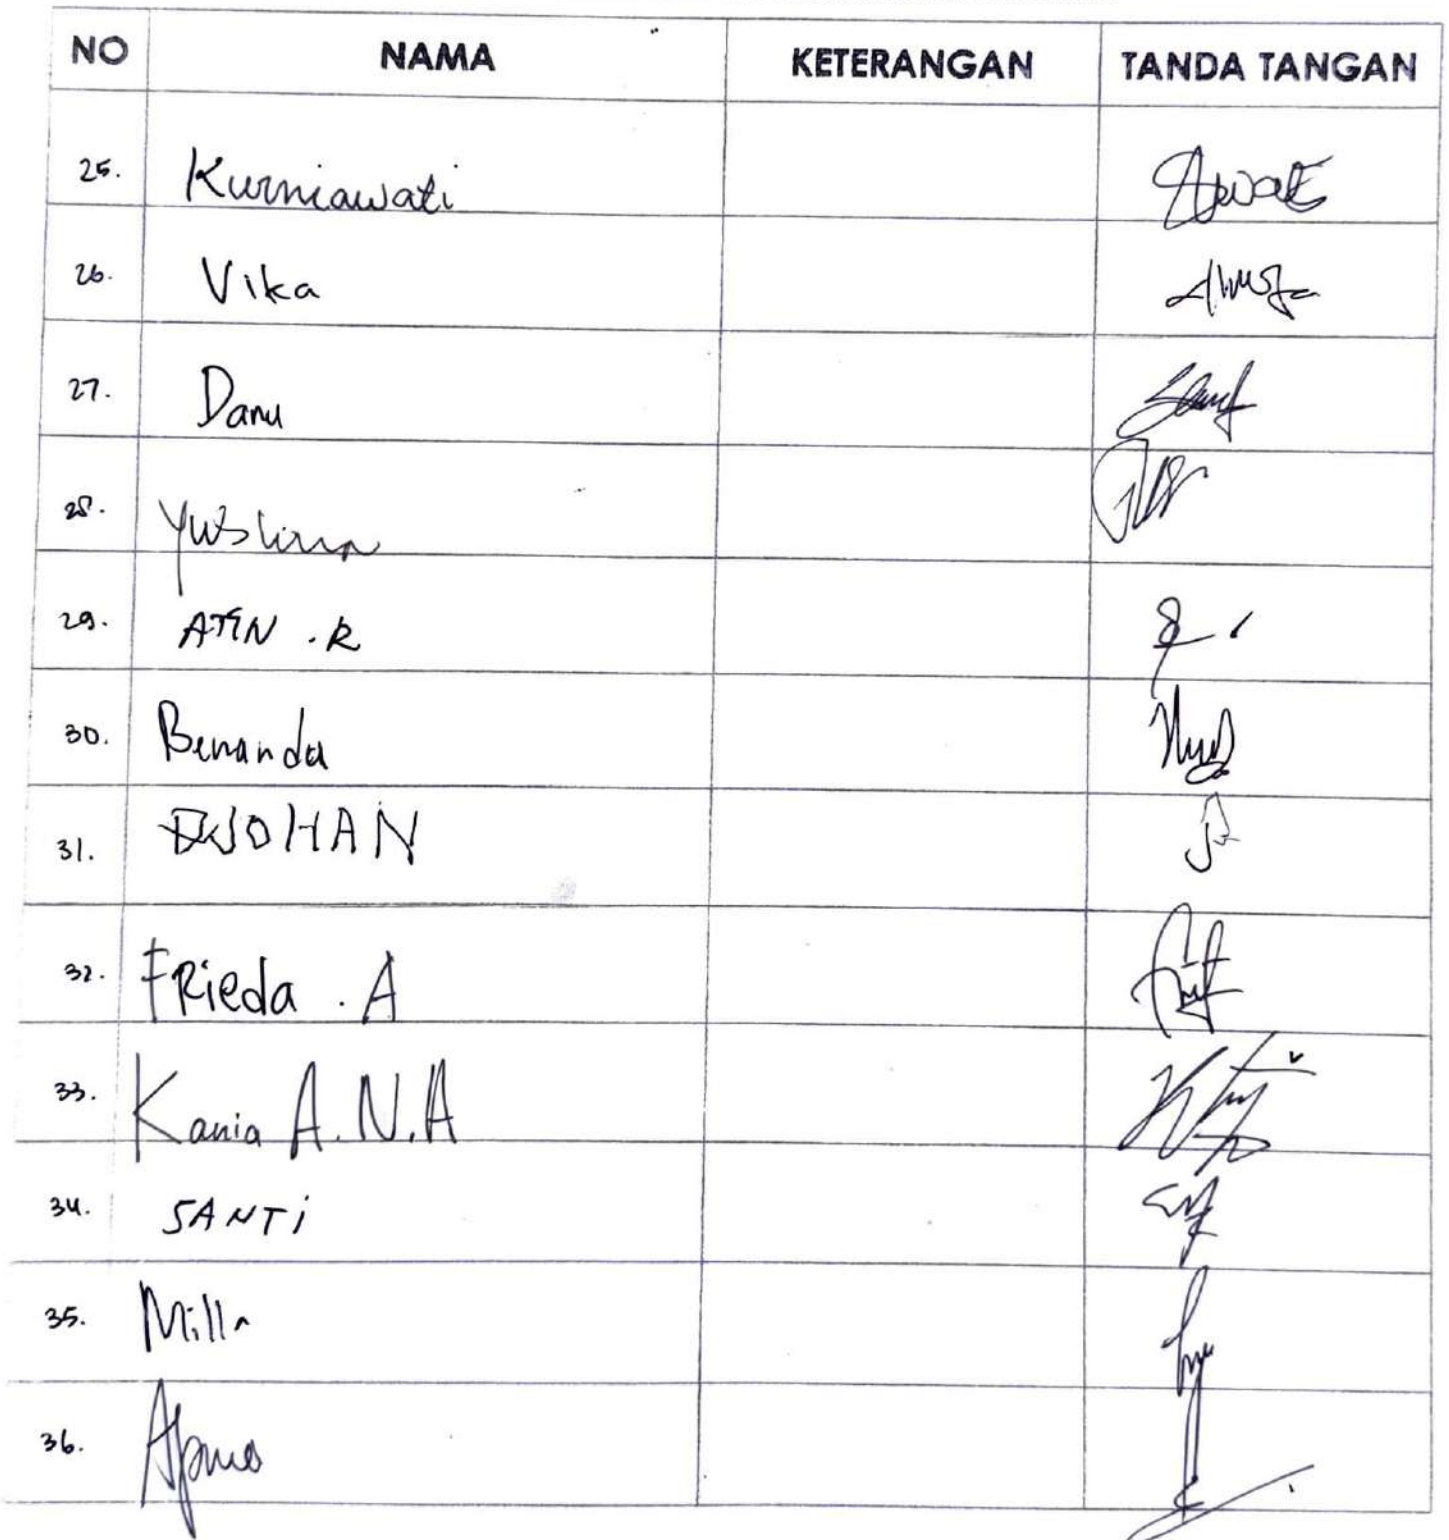 NO NAMA KETERANGAN TANDA TANGAN
25. Kurniawati
26. Vika
27. Danu
28. Yuslina
29. ATIN . R
30. Benanda
31. DJOHAN
32. FRieda . A
33. Kania A.N.A
34. SANTi
35. Milla
36.